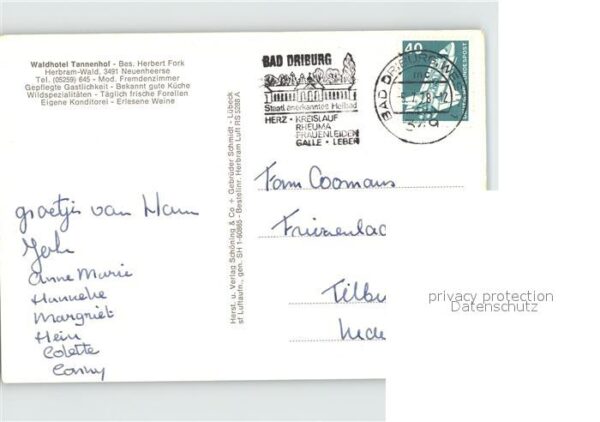 Waldhotel Tannenhof - Bes. Herbert Fork
Herbram-Wald, 3491 Neuenheerse
Tel. (05259) 645 - Mod. Fremdenzimmer
Gepflegte Gastlichkeit - Bekannt gute Küche
Wildspezialitäten - Täglich frische Forellen
Eigene Konditorei - Erlesene Weine
BAD DRIBURG
Staatl. anerkanntes Heilbad
HERZ · KREISLAUF
RHEUMA
FRAUENLEIDEN
GALLE · LEBER
40
BAD DRIBURG
349
Herst. u. Verlag Schöning & Co + Gebrüder Schmidt - Lübeck
sf Luftaufn., gen. SH 1-60865 - Bestellnr. Herbram Luft RS 5288 A
groetjes van
Anne Marie
Hanneke
Margriet
Hein
Colette
Conny
Fam Coomans
Tilbu
Nede
privacy protection
Datenschutz